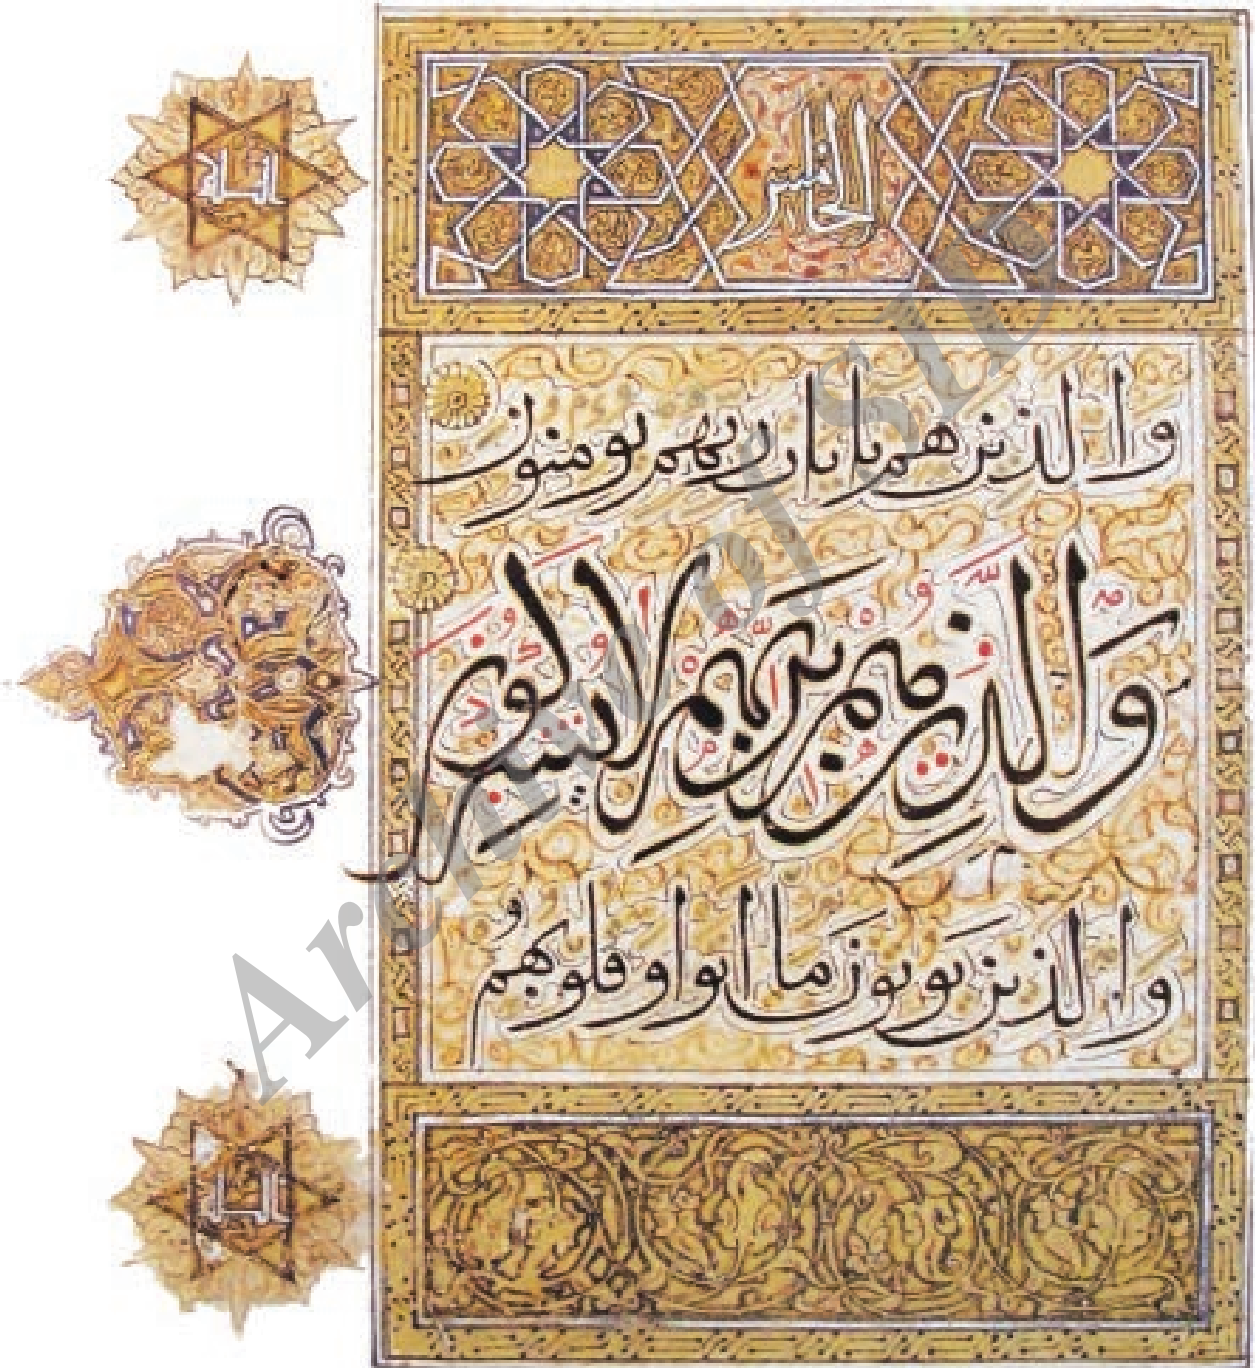 الخامس
والذين هم بايات ربهم يومنون
والذين هم بربهم لا يشركون
والذين يوتون ما اتوا وقلوبهم
Archive of SID